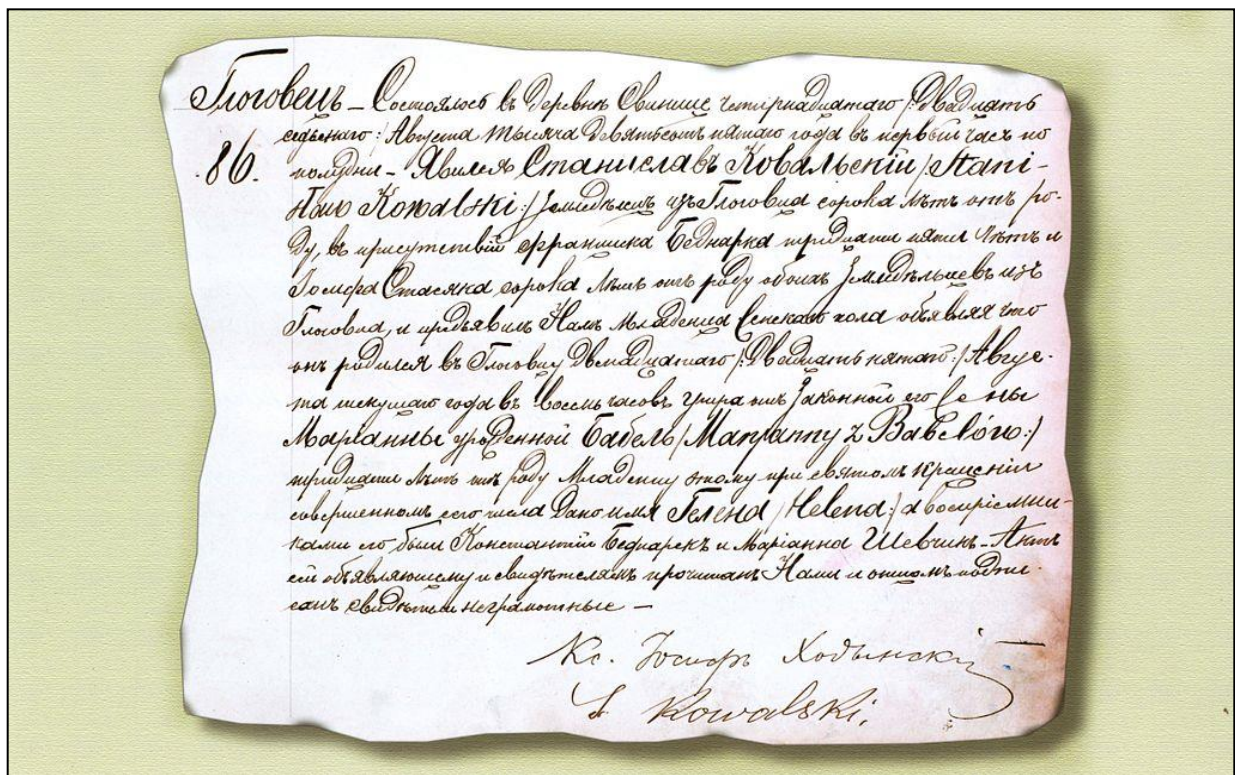 Глоговецъ – Состоялось въ деревнѣ Свинице четырнадцатаго /: двадцать
седьмаго: Августа тысяча девятьсотъ пятаго года въ первый часъ по
86. полудни – Явился Станиславъ Ковальскій /: Stani-
sław Kowalski :/ земледѣлецъ изъ Глоговца сорока лѣтъ отъ ро-
ду, въ присутствіи Франциска Беднарка тридцати пяти лѣтъ и
Іосифа Стасяка сорока лѣтъ отъ роду обоихъ земледѣльцевъ изъ
Глоговца, и предъявилъ Намъ младенца женскаго пола объявляя что
онъ родился въ Глоговцу двенадцатаго /: двадцать пятаго :/ Авгус-
та текущаго года въ восемь часовъ утра отъ законной его жены
Маріанны урожденной Бабель /: Maryanny z Babelów :/
тридцати лѣтъ отъ роду Младенцу этому при святомъ крещеніи
совершенномъ сего числа дано имя Гелена /: Helena :/ а воспріемни-
ками его были Константій Беднарекъ и Маріанна Шевчикъ – Актъ
сей объявляющему и свидѣтелямъ прочитанъ Нами и отцомъ подпи-
санъ свидѣтели неграмотные –
Кс. Іосифъ Ходынскій
S. Kowalski.